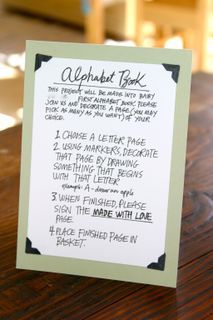 Alphabet Book
THIS PROJECT WILL BE MADE INTO BABY
FIRST ALPHABET BOOK. PLEASE
JOIN US AND DECORATE A PAGE (YOU MAY
PICK AS MANY AS YOU WANT) OF YOUR
CHOICE.
1. CHOOSE A LETTER PAGE
2. USING MARKERS, DECORATE
THAT PAGE BY DRAWING
SOMETHING THAT BEGINS
WITH THAT LETTER
example: A - draw an apple
3. WHEN FINISHED, PLEASE
SIGN THE MADE WITH LOVE
PAGE.
4. PLACE FINISHED PAGE IN
BASKET.